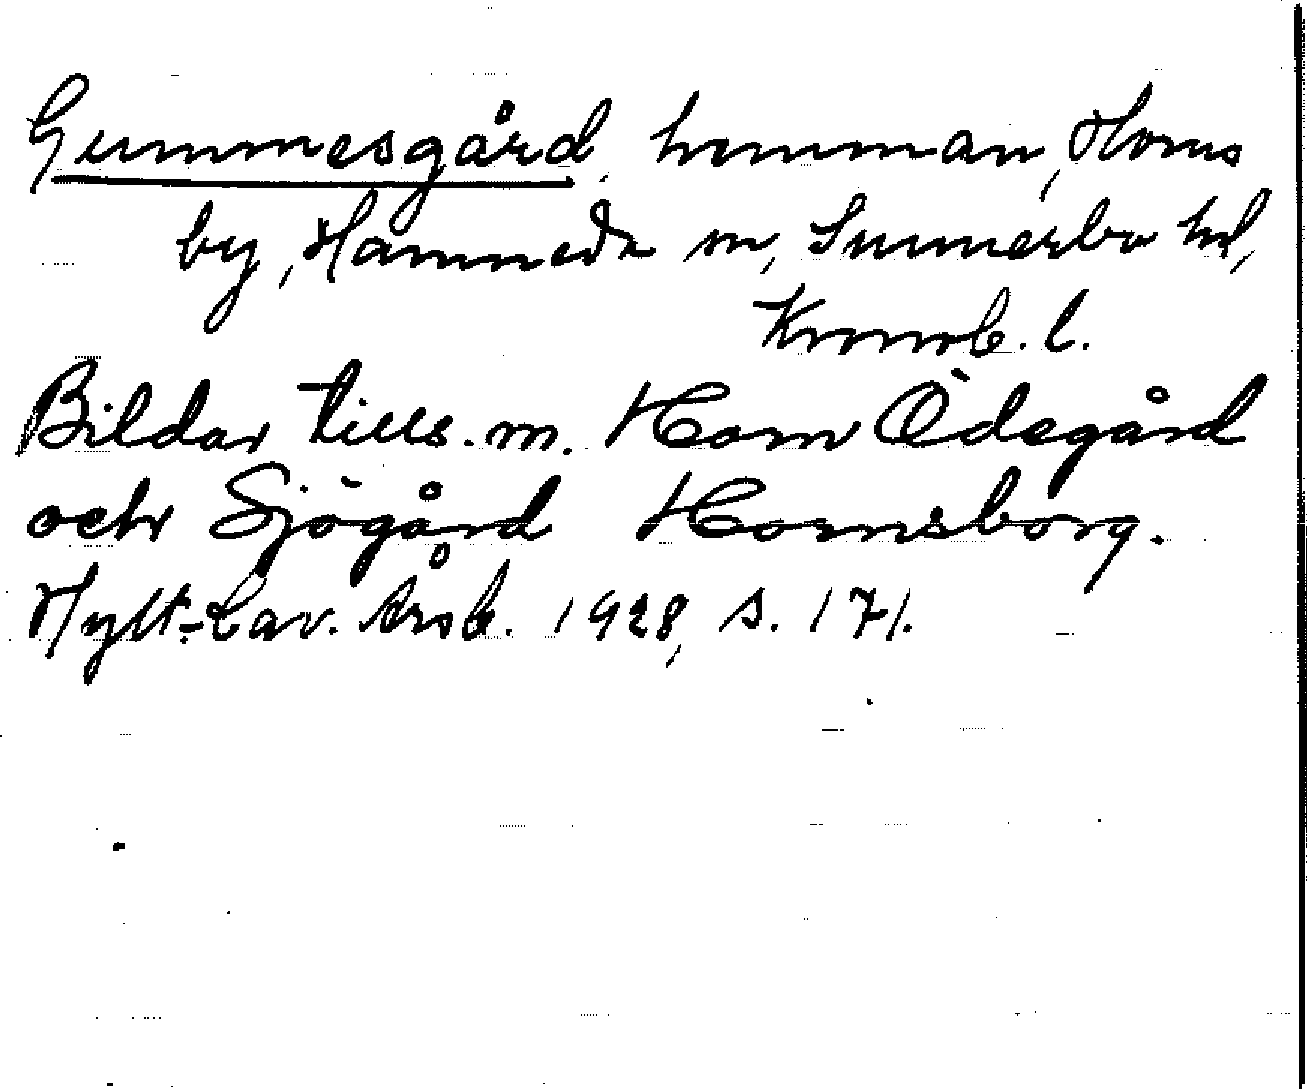 Gummesgård, hemman, Horns
by, Hamneda sn, Sunnerbo hd,
Kronob. l.
Bildar tills. m. Horn Ödegård
och Sjögård Hornsborg.
Hylt.-Cav. Årsb. 1928, s. 171.